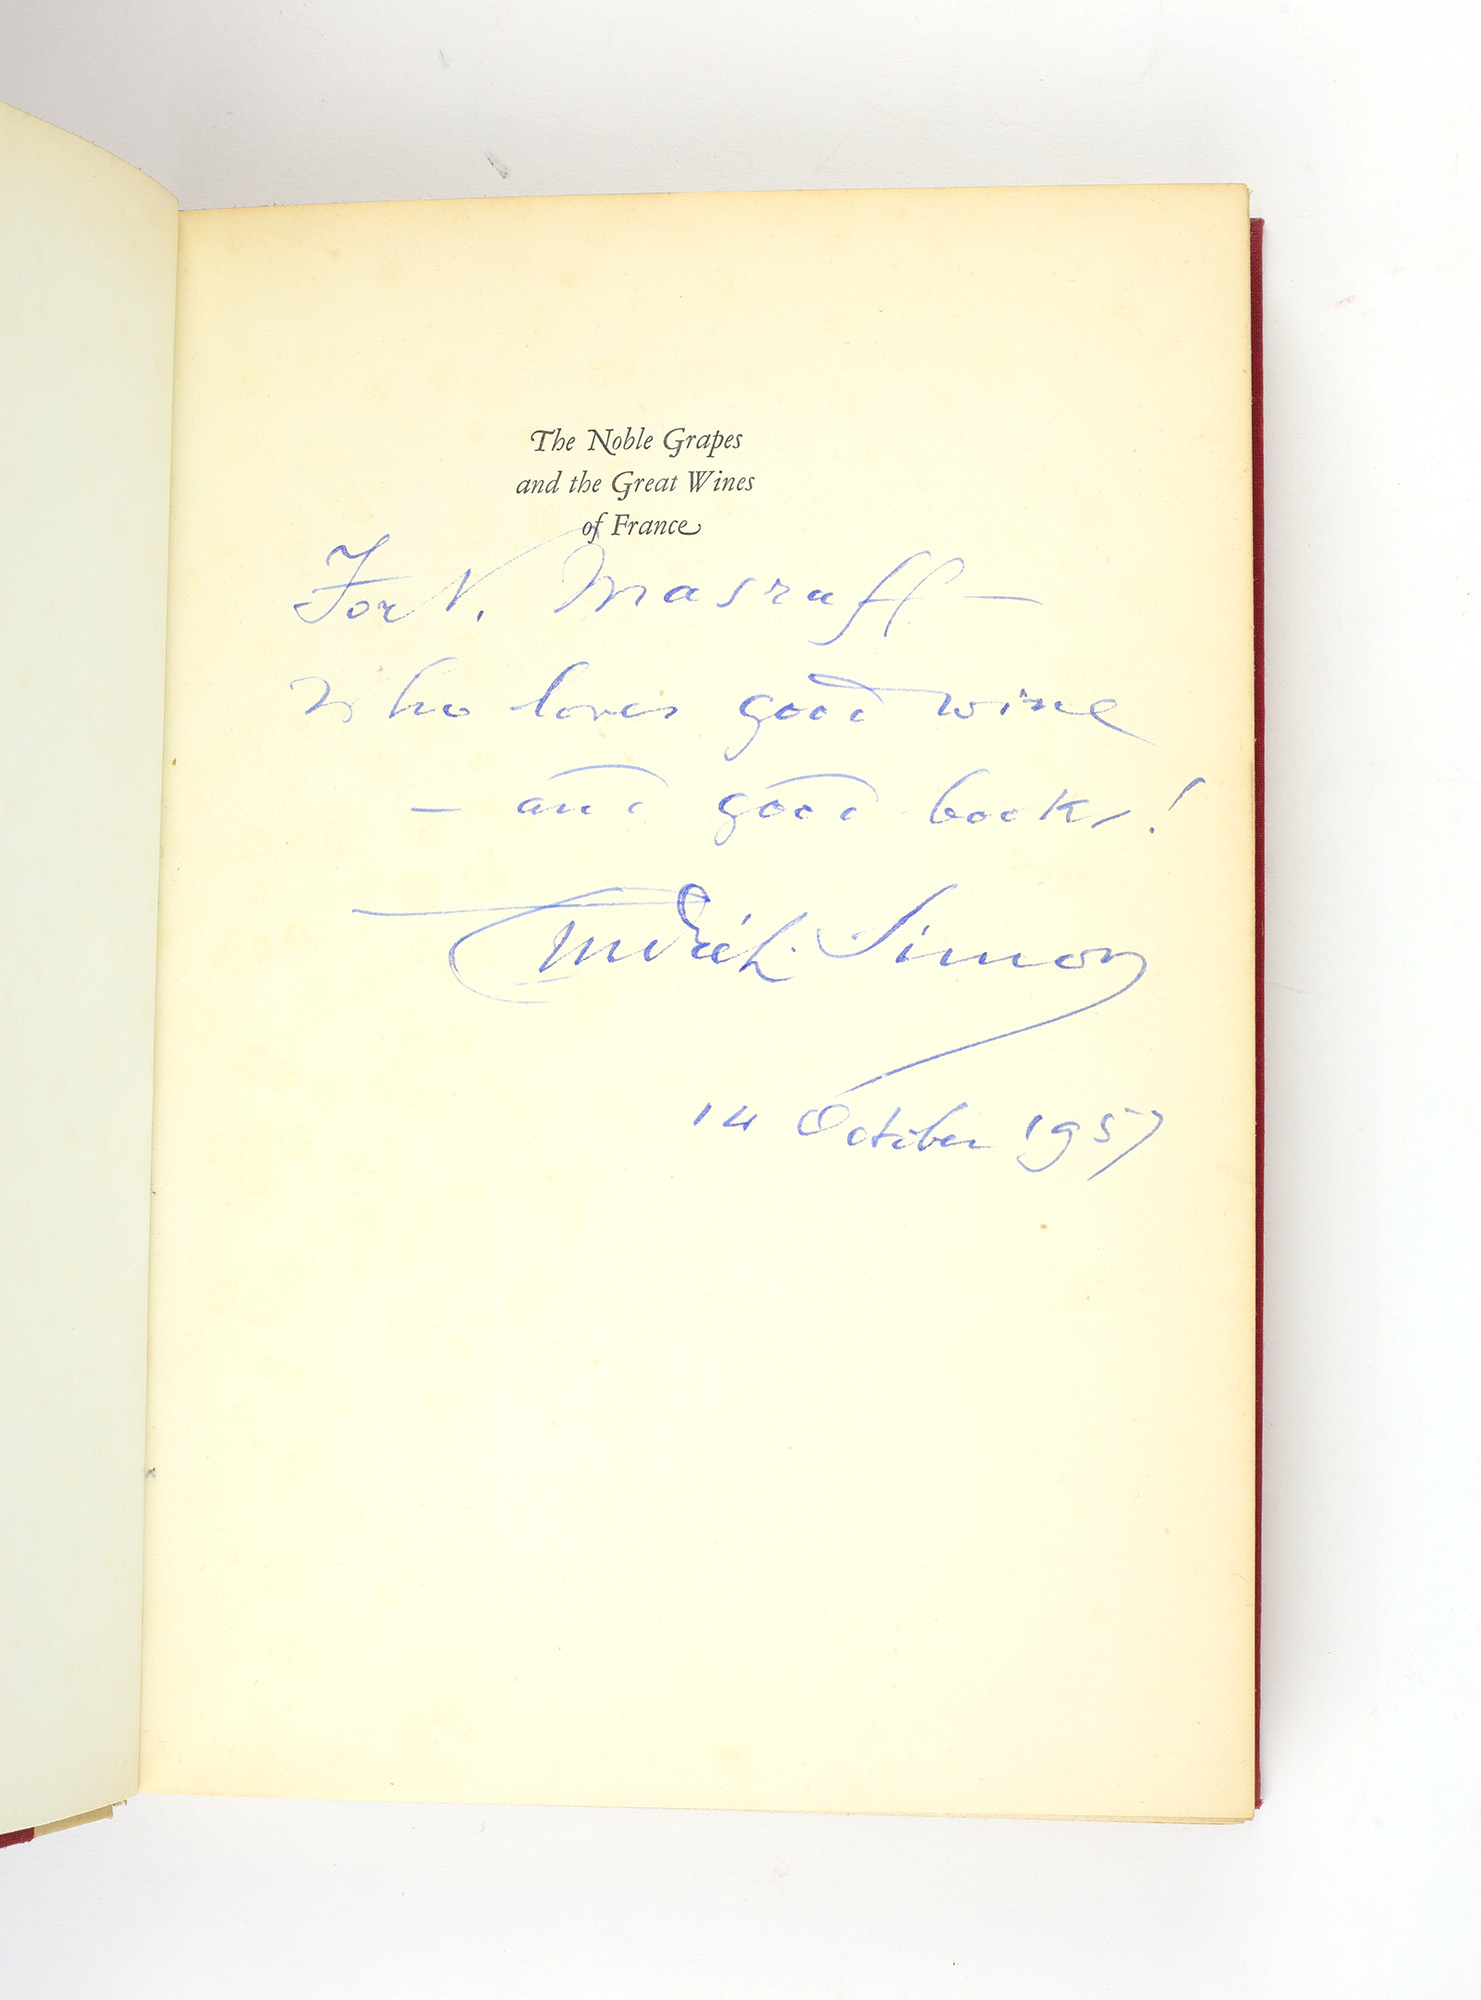 The Noble Grapes
and the Great Wines
of France
For N. Masruff —
who loves good wine
— and good books!
André L. Simon
14 October 1957